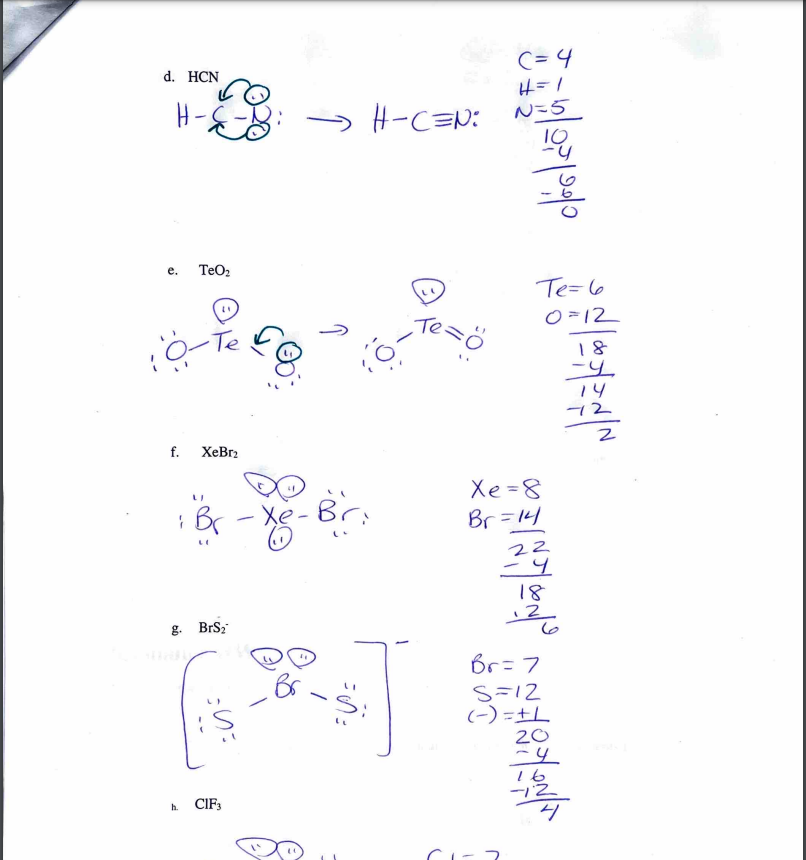 d. HCN
H-C-N: → H-C≡N:
C=4
H=1
N=5
10
-4
6
-6
0
e. TeO₂
O-Te O → O-Te=O
Te=6
O=12
18
-4
14
-12
2
f. XeBr₂
:Br-Xe-Br:
Xe=8
Br=14
22
-4
18
12
6
g. BrS₂⁻
[:S-Br-S:]⁻
Br=7
S=12
(-)=+1
20
-4
16
-12
4
h. ClF₃